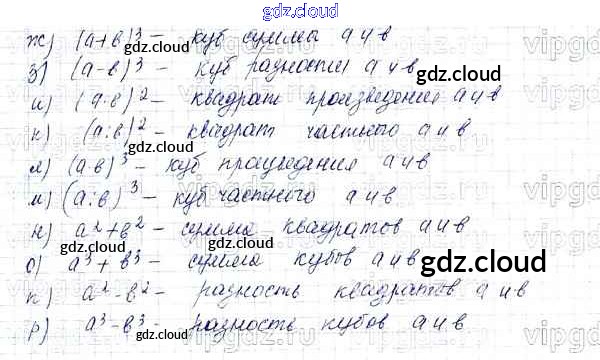 gdz.cloud
ж) (a+в)³ – куб суммы a и в
з) (a-в)³ – куб разности a и в
и) (a·в)² – квадрат произведения a и в
к) (a:в)² – квадрат частного a и в
л) (a·в)³ – куб произведения a и в
м) (a:в)³ – куб частного a и в
н) a²+в² – сумма квадратов a и в
о) a³+в³ – сумма кубов a и в
п) a²-в² – разность квадратов a и в
р) a³-в³ – разность кубов a и в
gdz.cloud
gdz.cloud
gdz.cloud
gdz.cloud
gdz.cloud
gdz.cloud
gdz.cloud
gdz.cloud
gdz.cloud